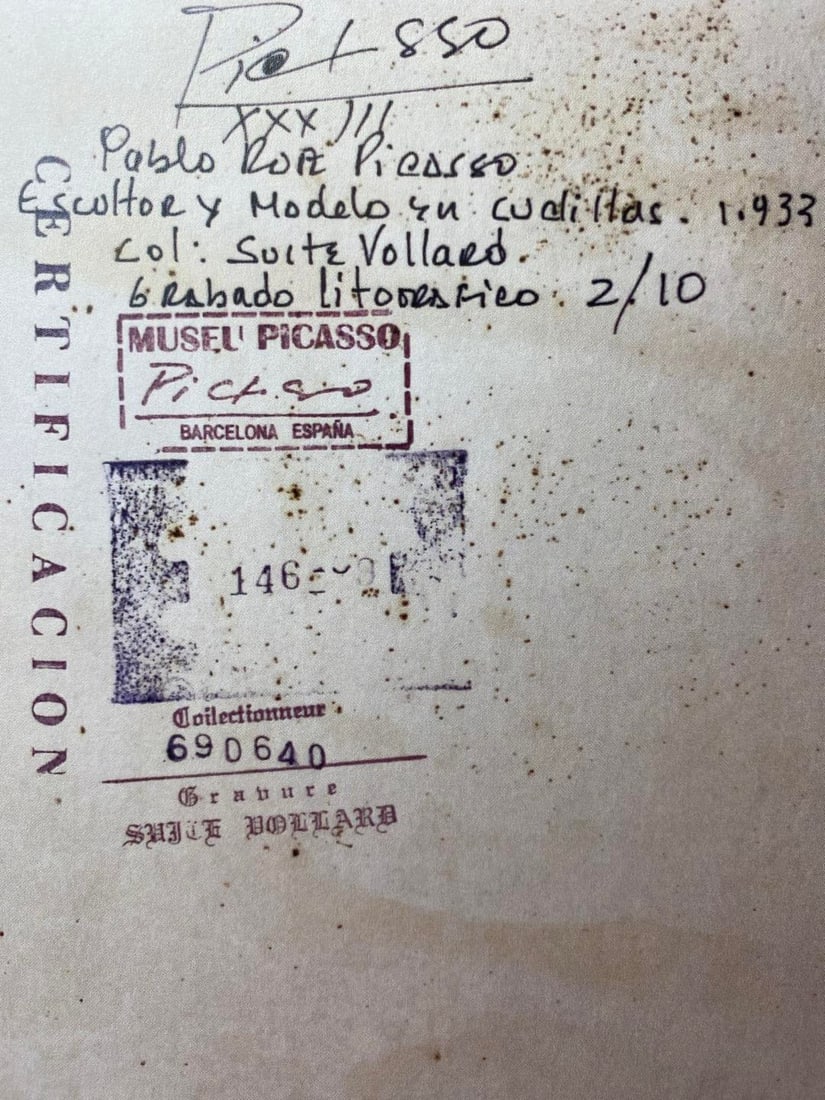 Picasso
XXXIII
Pablo Ruiz Picasso
Escultor y Modelo en cudillas. 1.933
Col: Suite Vollard.
Grabado litografico. 2/10
MUSEU PICASSO
Picasso
BARCELONA ESPAÑA
146
Coilectionneur
690640
Gravure
SUITE VOLLARD
CERTIFICACION